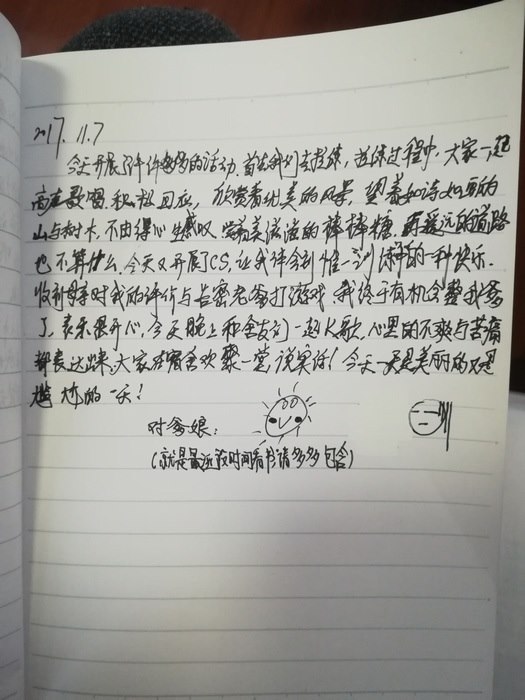 2017.11.7
今天开展了许许多多的活动,首先我们去拉练,拉练过程中,大家一起
高声歌唱,积极回应,欣赏着优美的风景,望着如诗如画的
山与树木,不由得心生感叹,尝着美滋滋的棒棒糖,再遥远的道路
也不算什么,今天又开展了CS,让我体会到惟一训练的一种快乐.
收到母亲对我的评价与爸爸打游戏,我终于有机会整我爸
了,表示很开心,今天晚上和舍友们一起K歌,心里的不爽与苦痛
都表达出来,大家在宿舍欢聚一堂,说实话!今天一天是美丽的又是
尴尬的一天!
对爹娘:
(就是最近没时间看书请多多包含)